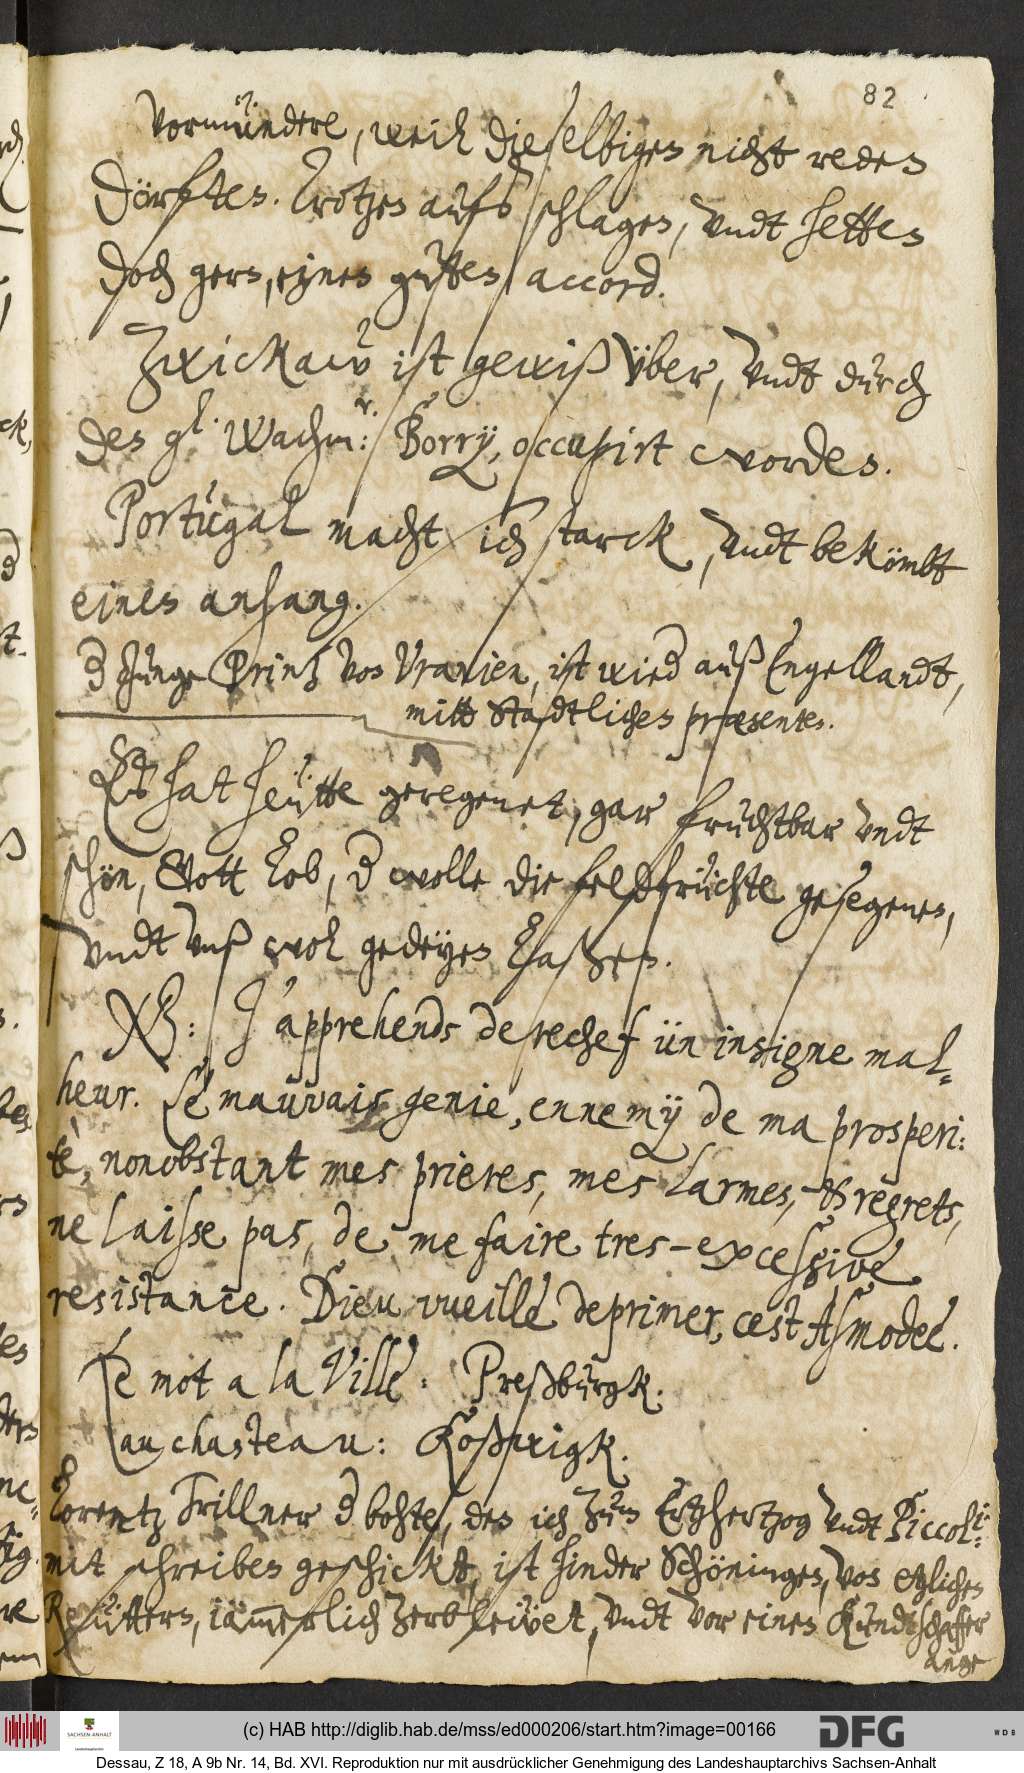 82
Vormündere, weil dieselbigen nicht reden
dörften. Trotzen aufs schlagen, undt hetten
doch gern, eynen gutten accord.
Zwickaw ist gewiß über, undt durch
des gl. Wachm:r. Borry, occupirt worden.
Portugal macht sich starck, undt bekömbt
einen anhang.
d Junge Printz von Uranien, ist wied auß Engellandt,
mitt Stadtlichen præsenten.
Es hat heütte geregenet, gar fruchtbar undt
schön, Gott lob, d wolle die feldfrüchte gesegenen,
undt unß wol gedeyen laßen.
NB: J'apprehends derechef ün insigne mal-
heur. Le mauvais genie, ennemÿ de ma prosperi:
tè, nonobstant mes prieres, mes larmes, & regrets,
ne laisse pas, de me faire tres-excessive
resistance. Dieu vueille deprimer, cest Asmodee.
Le mot a la Ville. Preßburgk.
au chasteau: Coßwigk.
Lorentz Trillner d bohte, den ich zum Ertzhertzog undt Piccol:i
mit schreiben geschickt, ist hinder Schöningen, von etzlichen
Reüttern, iämerlich zerbleüet, undt vor einen Kundtschaffer
ange
(c) HAB http://diglib.hab.de/mss/ed000206/start.htm?image=00166
SACHSEN-ANHALT
DFG
WDB
Dessau, Z 18, A 9b Nr. 14, Bd. XVI. Reproduktion nur mit ausdrücklicher Genehmigung des Landeshauptarchivs Sachsen-Anhalt